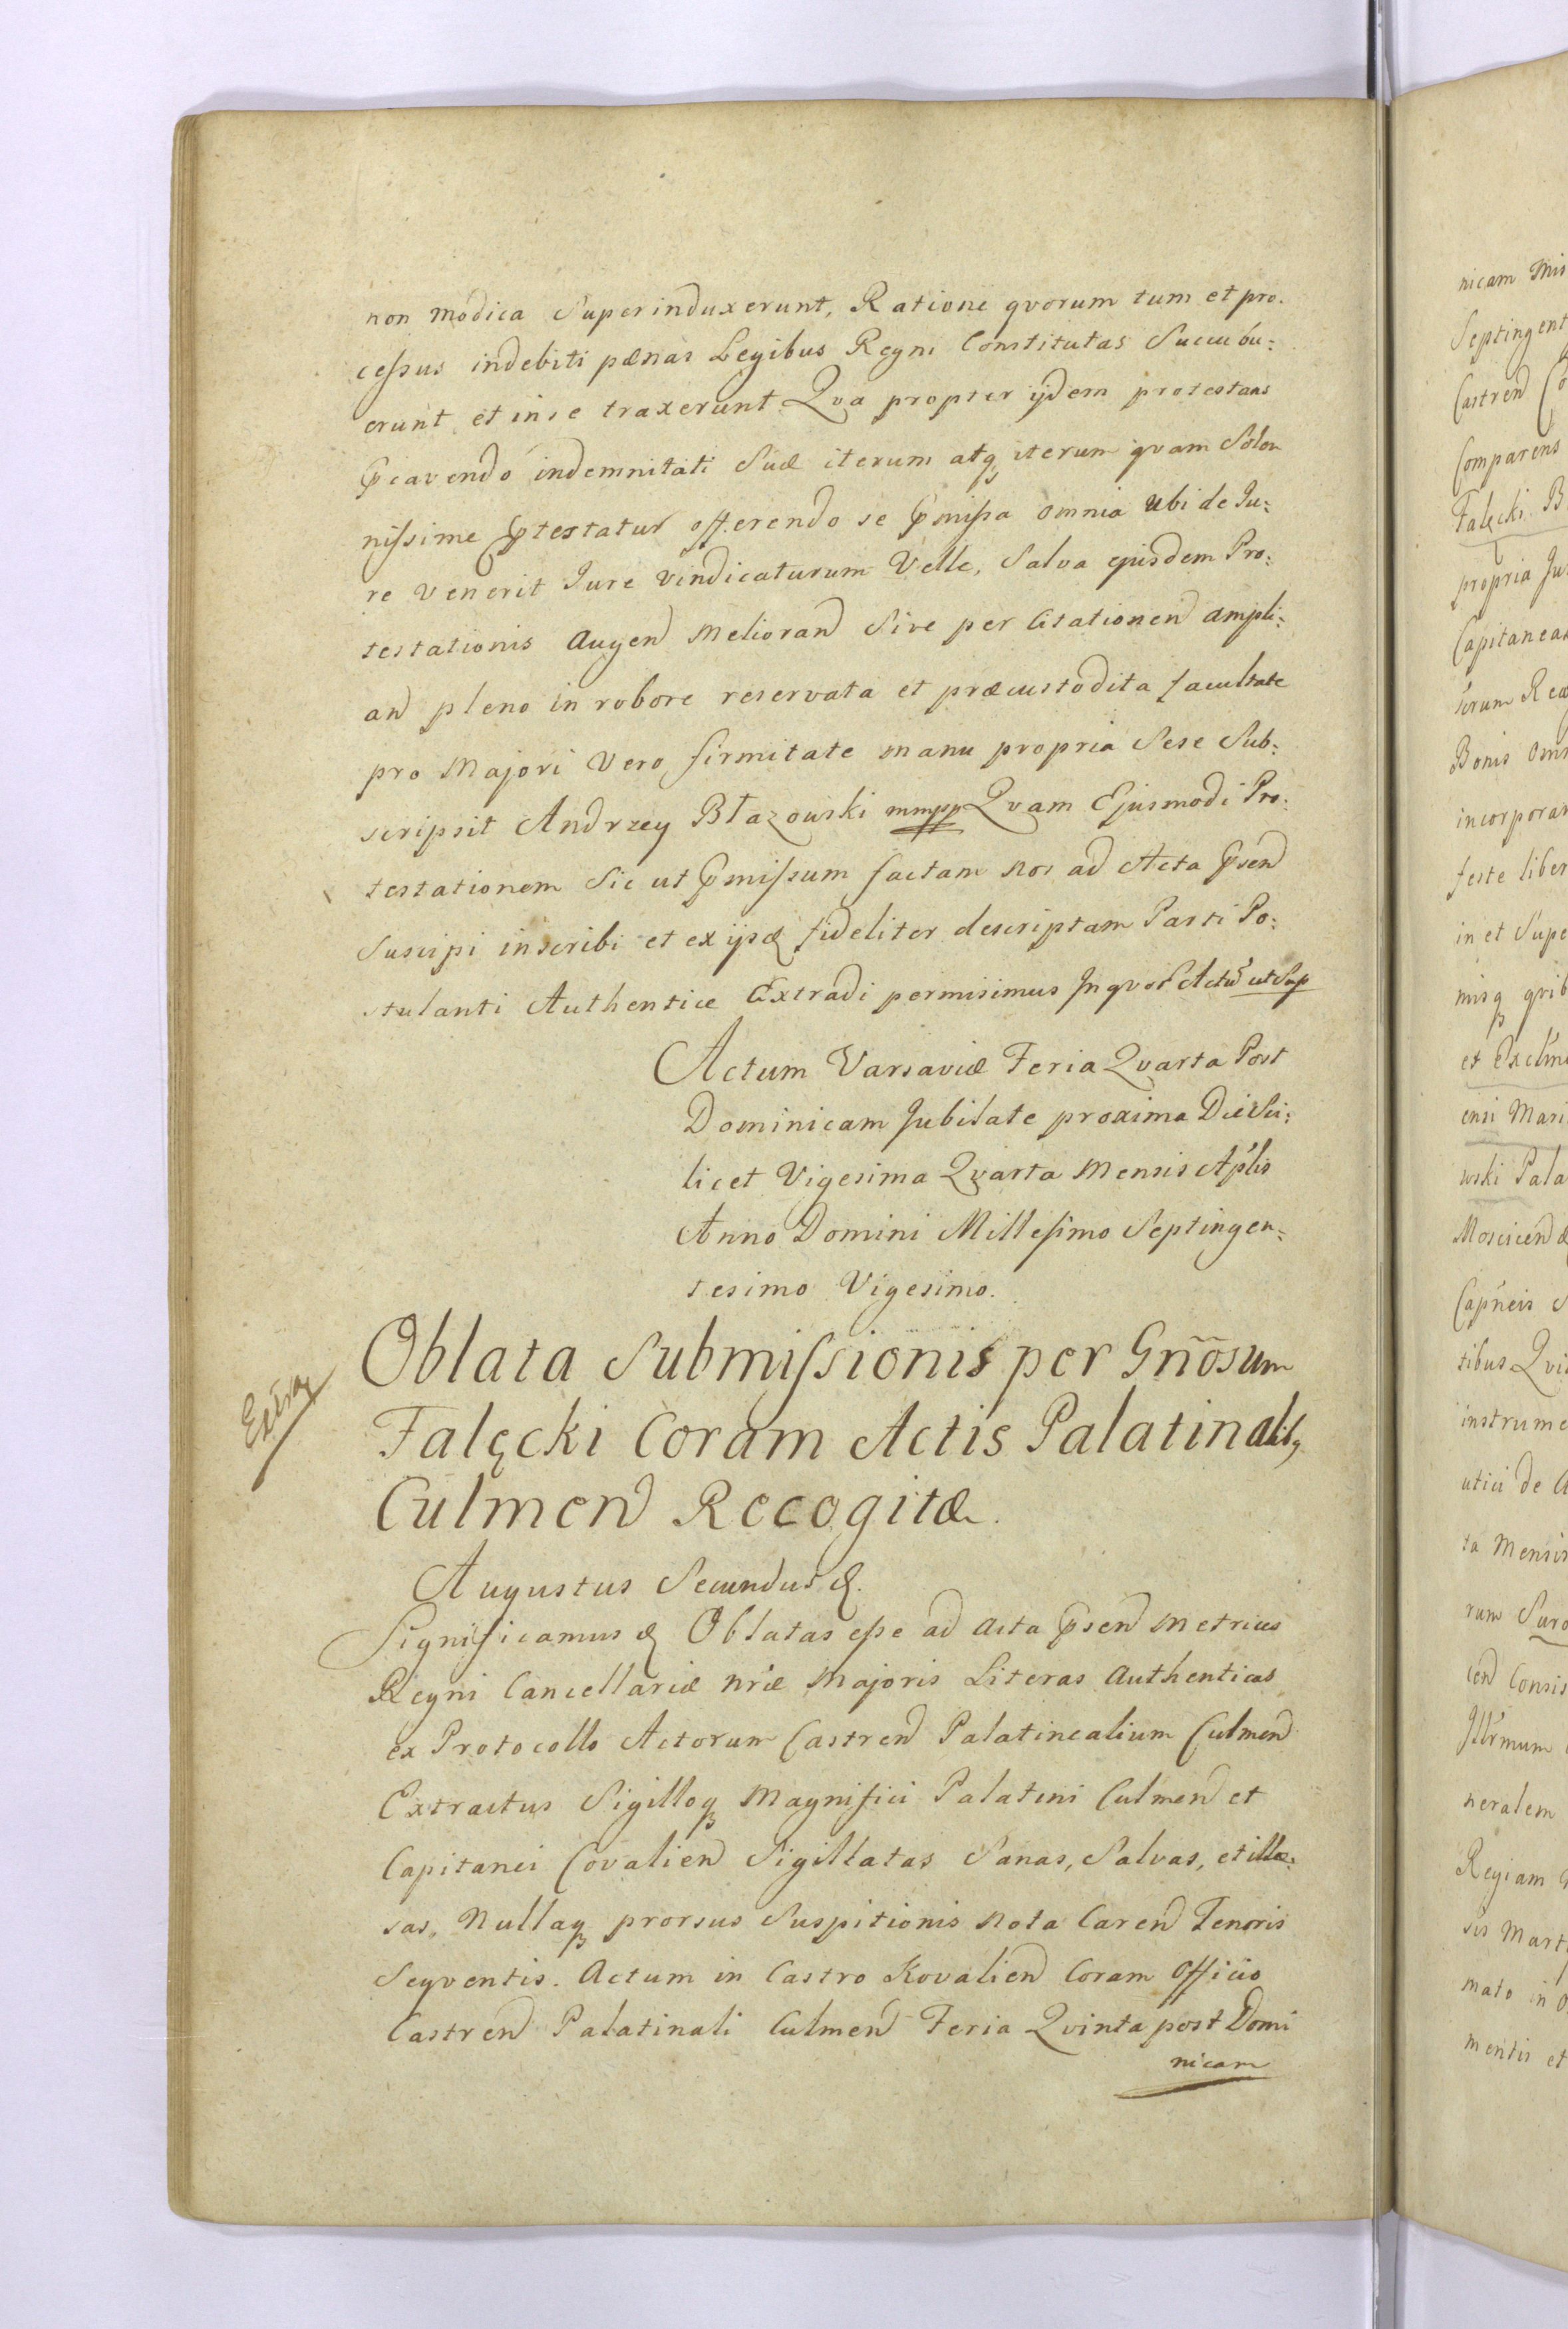 non modica Superinduxerunt, Ratione qvorum tum et pro-
cessus indebiti pænas Legibus Regni Constitutas Succubu:
erunt, et in se traxerunt. Qva propter ijdem protestans
Præcavendo indemnitati Suæ iterum atq iterum qvam Solen
nissime Protestatur offerendo se Præmissa omnia ubi de Ju:
re Venerit Jure vindicaturum Velle, Salva ejusdem Pro:
testationis Augend Meliorand Sive per Citationend Ampli:
and pleno in robore reservata et præcustodita facultate
pro Majori Vero firmitate manu propria Sese Sub:
scripsit Andrzey Błazowski mmpp Qvam Ejusmodi Pro:
testationem Sic ut Præmissum factam Nos ad Acta Præsend
Suscipi inscribi et ex ijsd fideliter descriptam Parti Po:
stulanti Authentice Extradi permisimus Jn qvor Actū ut Sup
Actum Varsaviæ Feria Qvarta Post
Dominicam Jubilate proxima Die Sci:
licet Vigesima Qvarta Mensis Aplis
Anno Domini Millesimo Septingen:
tesimo Vigesimo.
Oblata Submissionis per Gñosum
Falęcki Coram Actis Palatinalibq
Culmend Recogitæ.
Extra
Augustus Secundus &.
Significamus & Oblatas esse ad Acta Præsend Metrices
Regni Cancellariæ nræ Majoris Literas Authenticas
ex Protocollo Actorum Castrend Palatinealium Culmend
Extractus Sigilloq Magnifici Palatini Culmend et
Capitanei Covaliend Sigillatas Sanas, Salvas, et illæ:
sas, Nullaq prorsus Suspitionis Nota Carend Tenoris
Seqventis. Actum in Castro Kovaliend Coram Officio
Castrend Palatinali Culmend Feria Qvinta post Domi
nicam
nicam
Septingent
Castrend
Comparens
Falęcki B
propria Ju
Capitanea
Bonis Omn
incorporar
feste liber
in et Supe
misq qvib
et
ensi Mari
wski Pala
Moscicend &
Capneis
tibus Qvi
instrume
utici de A
ta Mensis
rum
cend Consis
Jllrmum
neralem
Regiam
sis Mart
mato in O
mentis et